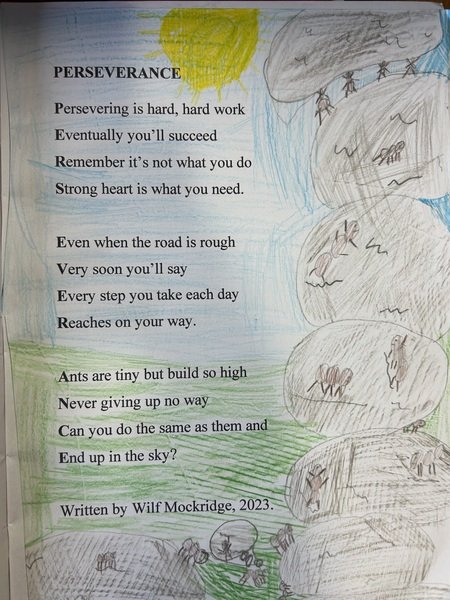 PERSEVERANCE
Persevering is hard, hard work
Eventually you'll succeed
Remember it's not what you do
Strong heart is what you need.
Even when the road is rough
Very soon you'll say
Every step you take each day
Reaches on your way.
Ants are tiny but build so high
Never giving up no way
Can you do the same as them and
End up in the sky?
Written by Wilf Mockridge, 2023.